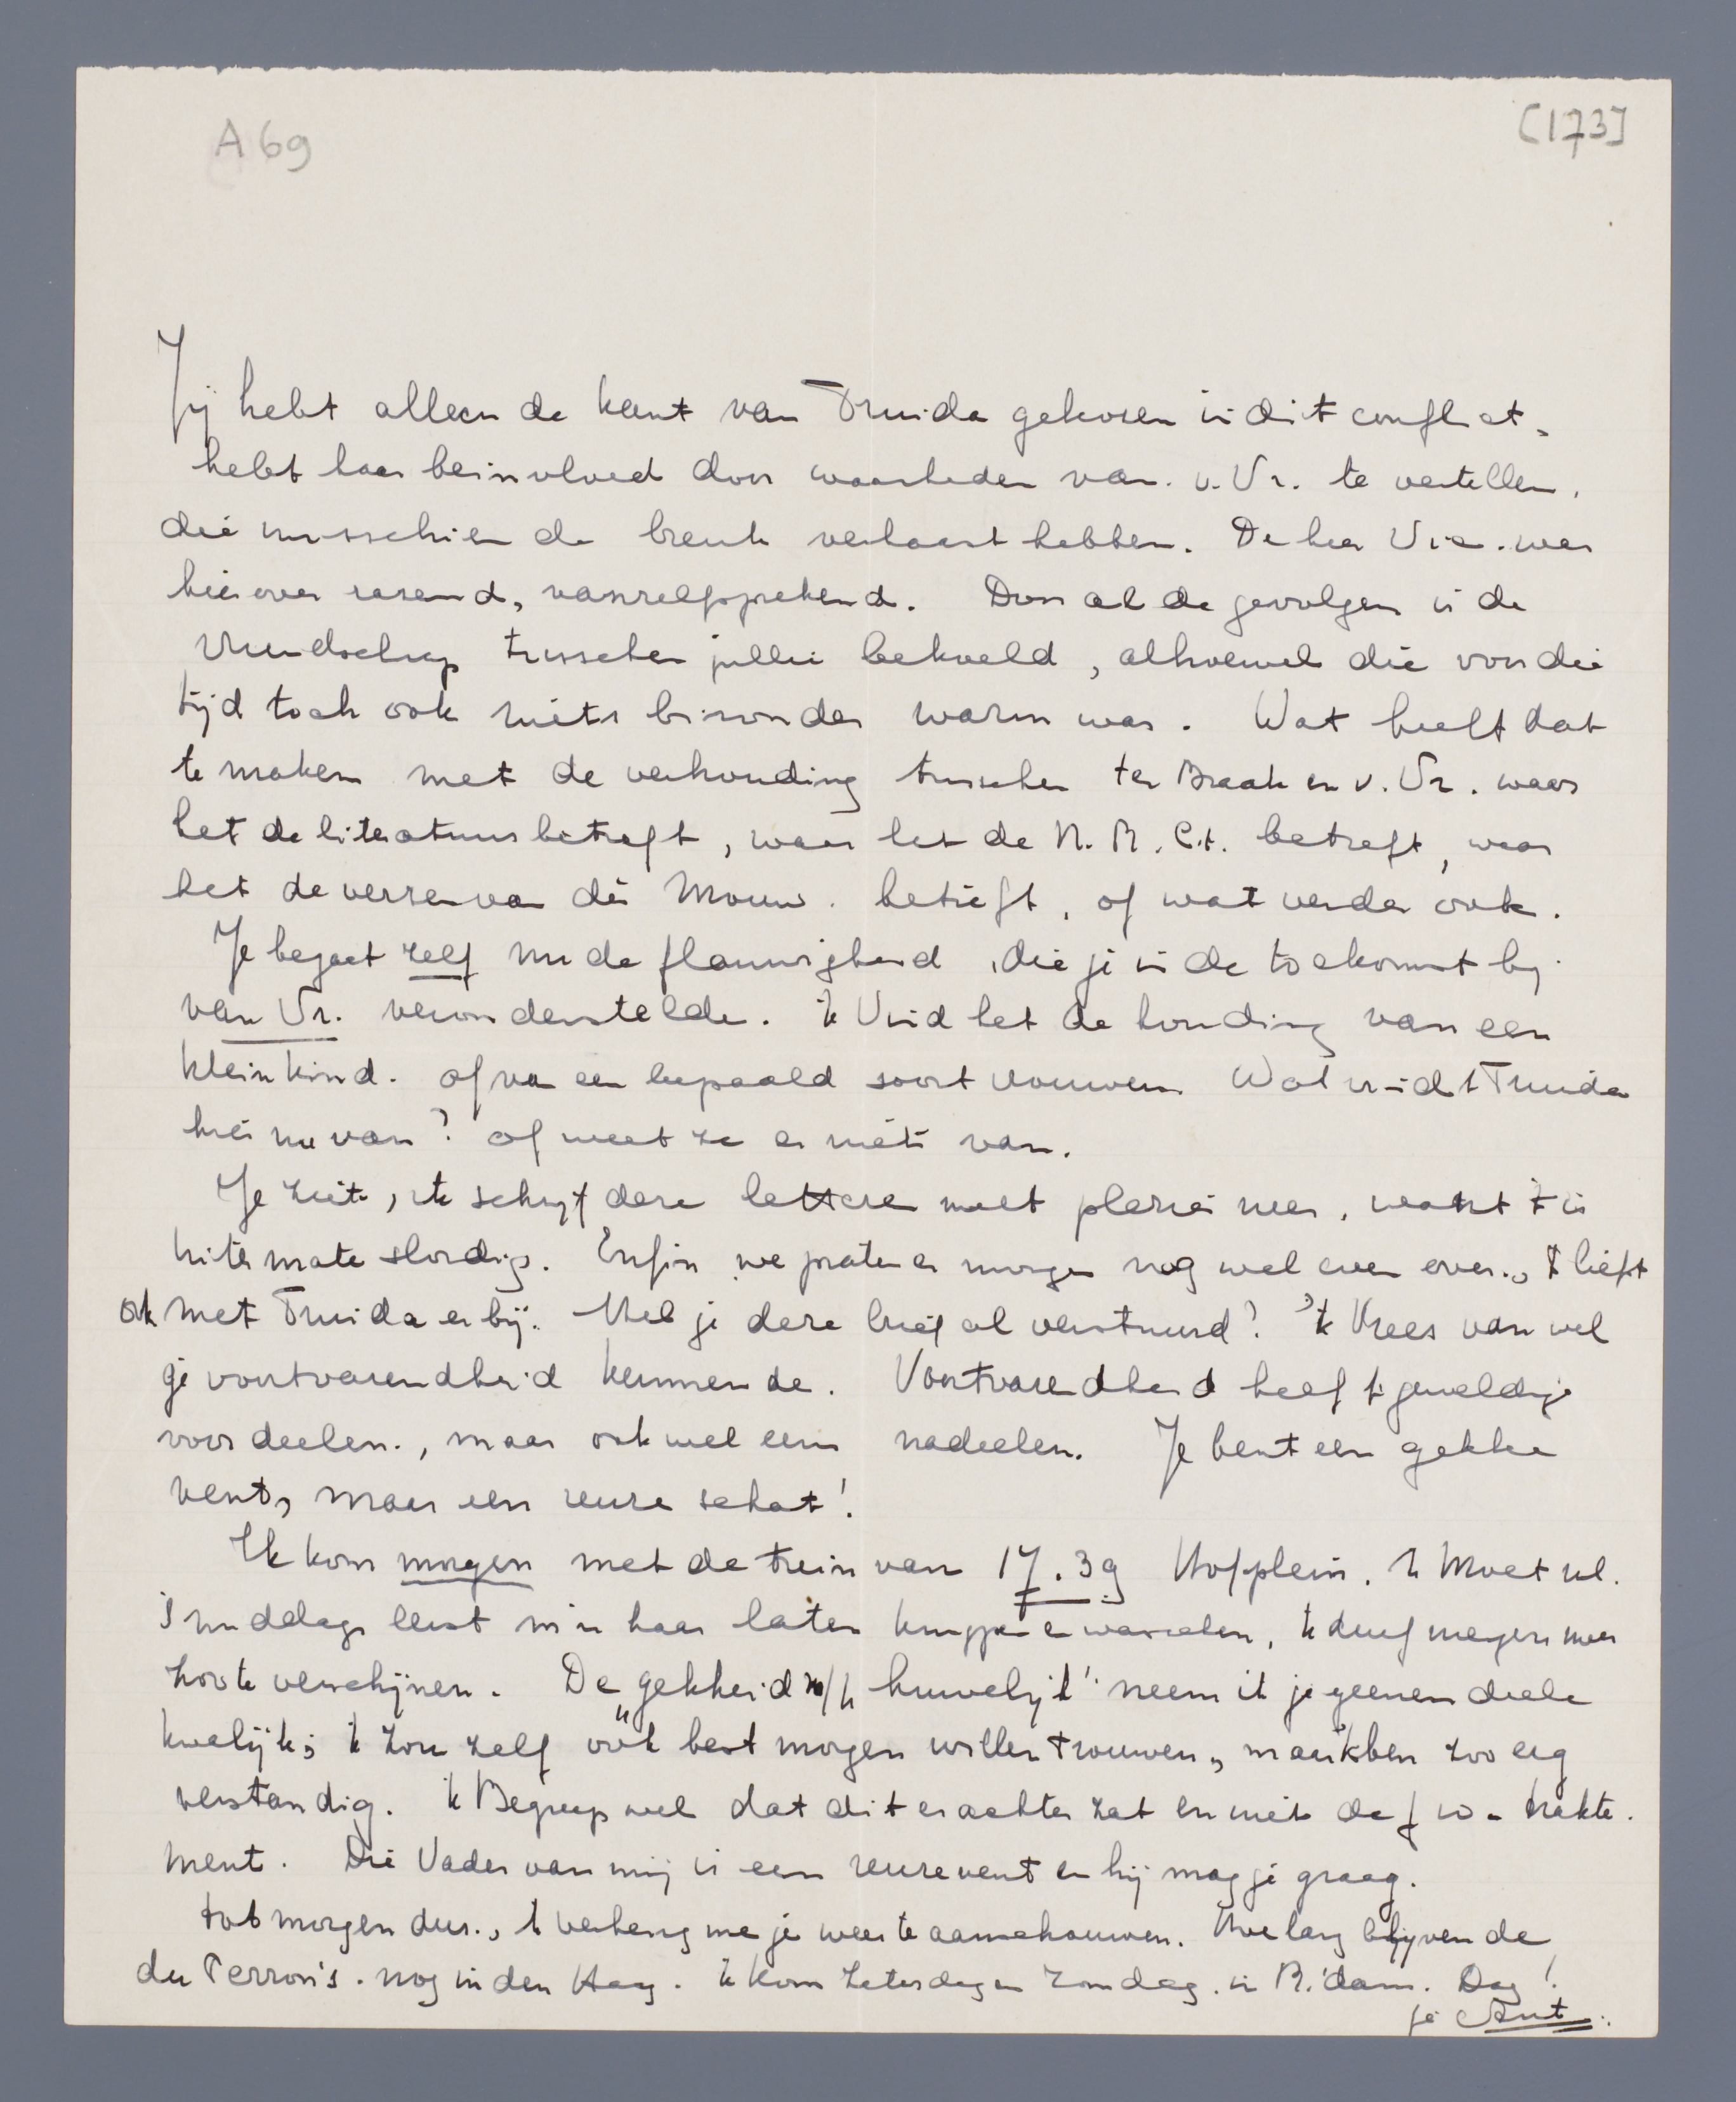 A 69
[173]
Jij hebt alleen de kant van Truida gekozen in dit conflict,
hebt haar beinvloed door waarheden van v. Vr. te vertellen,
die misschien de breuk verhaast hebben. De heer Vr. was
hierover razend, vanzelfsprekend. Door al de gevolgen is de
vriendschap tusschen jullie bekoeld, alhoewel die voor die
tijd toch ook niets bizonder warm was. Wat heeft dat
te maken met de verhouding tusschen ter Braak en v. Vr. waar
het de literatuur betreft, waar het de N.R.Ct. betreft, waar
het de verzen van dèr Mouw betreft, of wat verder ook.
Je begaat zelf nu de flauwigheid, die je in de toekomst bij
van Vr. veronderstelde. 'k Vind het de houding van een
klein kind. of van een bepaald soort vrouwen. Wat vindt Truida
hier nu van? of weet ze er niets van.
Je ziet, ik schrijf deze lettere met plezier neer, want 't is
uitermate slordig. Enfin we praten er morgen nog wel even over., 't liefst
ook met Truida erbij. Heb je deze brief al verstuurd? 'k Vrees van wel
je voortvarendheid kennende. Voortvarendheid heeft geweldige
voordeelen., maar ook wel eens nadeelen. Je bent een gekke
vent, maar een reuze schat!
Ik kom morgen met de trein van 17.39 Hofplein. 'k Moet nl.
's middags eerst m'n haar laten knippen en wasschen, 'k durf nergens meer
zoo te verschijnen. De „gekkeid v/h huwelijk" neem ik je geenen deele
kwalijk; 'k zou zelf ook best morgen willen trouwen, maar 'k ben zoo erg
verstandig. 'k Begreep wel dat dit er achter zat en niet de f 10.- trakte-
ment. Die Vader van mij is een reuze vent en hij mag je graag.
tot morgen dus., 'k verheug me je weer te aanschouwen. Hoe lang blijven de
du Perron's nog in den Haag. 'k Kom Zaterdag en Zondag in R.'dam. Dag!
je Ant.